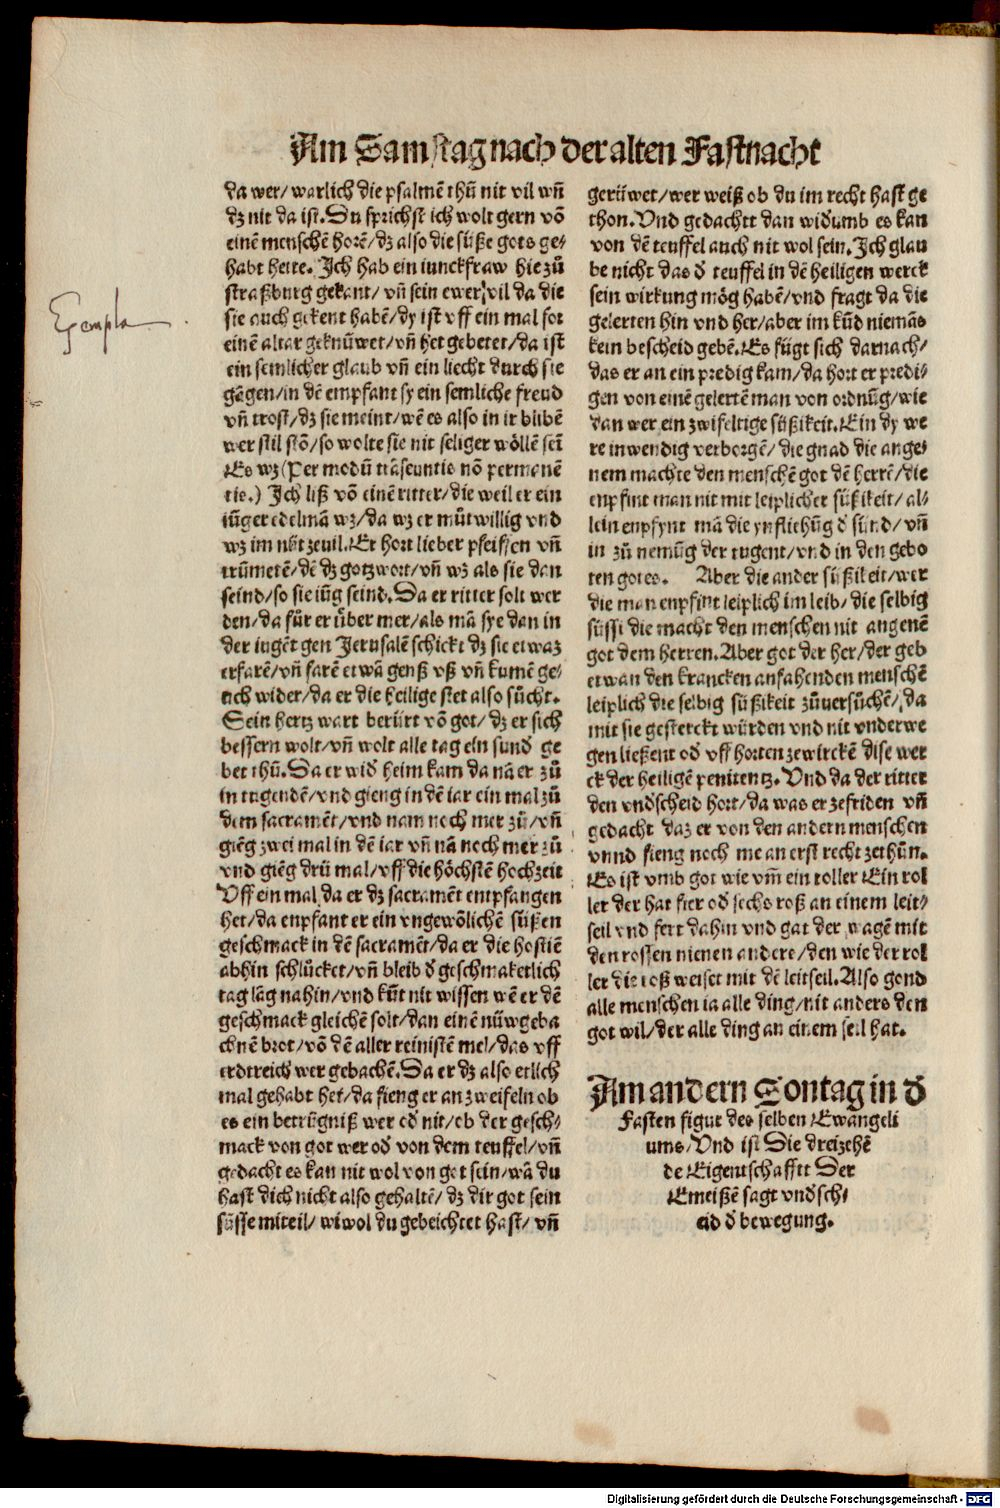 Am Samstag nach der alten Fastnacht
da wer/ warlich die psalmē thū nit vil wñ
dz nit da ist. Du sprichst ich wolt gern võ
einē menschē horē/ dz also die süße gots ge⸗
habt hette. Ich hab ein iunckfraw hie zů
straßburg gekant/ vñ sein ewer vil da die
sie auch gekent habē/ dy ist vff ein mal for
einē altar geknüwet/ vñ het gebetet/ da ist
ein semlicher glaub vñ ein liecht durch sie
gāgen/ in dē empfant sy ein semliche freud
vñ trost/ dz sie meint/ wē es also in ir blibē
wer stil stō/ so wolte sie nit seliger wöllē sei
Es wz (Per modū trāseuntis nō permanē
tis.) Ich liß võ einē ritter/ die weil er ein
iūger edelmā wz/ da wz er můtwillig vnd
wz im nüt zeuil. Er hort lieber pfeiffen vñ
trūmetē/ dē dz gotzwort/ vñ wz als sie dan
seind/ so sie iūg seind. Da er ritter solt wer
den/ da fůr er über mer/ als mā sye dan in
der iugēt gen Jerusalē schickt dz sie etwaz
erfarē/ vñ farē etwā genß vß vñ kumē ge⸗
uch wider/ da er die heilige stet also sůcht.
Sein hertz wart berürt võ got/ dz er sich
bessern wolt/ vñ wolt alle tag ein sund ge
bet thů. Da er wid̄ heim kam da nā er zů
in tugendē/ vnd gieng in dē iar ein mal zů
dem sacramēt/ vnd nam noch mer zů/ vñ
giēg zwei mal in dē iar vñ nā noch mer zů
vnd giēg drü mal/ vff die höchstē hochzeit
Vff ein mal da er dz sacramēt entpfangen
het/ da enpfant er ein vngewōlichē süßen
geschmack in dē sacramēt/ da er die hostiē
abhin schlücket/ vñ bleib d̄ geschmaketlich
tag lāg nahin/ vnd kūt nit wissen wē er dē
geschmack gleichē solt/ dan einē nüwgeba
chnē brot/ võ dē aller reinistē mel/ das vff
erdtreich wer gebachē. Da er dz also etlich
mal gehabt het/ da fieng er an zweifeln ob
es ein betrügniß wer od̄ nit/ ob der gesch⸗
mack von got wer od̄ von dem teuffel/ vñ
gedacht es kan nit wol von got sein/ wā du
hast dich nicht also gehaltē/ dz dir got sein
süsse miteil/ wiwol du gebeichtet hast/ vñ
gerüwet/ wer weiß ob du im recht hast ge
thon. Vnd gedachtt dan widumb es kan
von dē teuffel auch nit wol sein. Ich glau
be nicht das d̄ teuffel in dē heiligen werck
sein wirkung mög habē/ vnd fragt da die
gelerten hin vnd her/ aber im kūd niemās
kein bescheid gebē. Es fügt sich darnach/
das er an ein predig kam/ da hort er predi⸗
gen von einē gelertē man von ordnūg/ wie
dan wer ein zwifeltige süßikeit. Ein dy we
re inwendig verborgē/ die gnad die ange⸗
nem machte den menschē got dē herrē/ die
enpfint man nit mit leiplicher süßikeit/ al⸗
lein enpfynt mā die ynflichūg d̄ sünd/ vñ
in zů nemūg der tugent/ vnd in den gebo
ten gotes. Aber die ander süßikeit/ wer
die man enpfint leiplich im leib/ die selbig
süssi die macht den menschen nit angenē
got dem herren. Aber got der her/ der geb
etwan den krancken anfahenden menschē
leiplich die selbig süßikeit zůuersůchē/ da
mit sie gesterckt würden vnd nit vnderwe
gen ließent od̄ vff horten zewirckē dise wer
ck der heiligē penitentz. Vnd da der ritter
den vnd̄scheid hort/ da was er zefriden vñ
gedacht daz er von den andern menschen
vnnd fieng noch me an erst recht zethůn.
Es ist vmb got wie vm̄ ein roller Ein rol
ler der hat fier od̄ sechs roß an einem leit⸗
seil vnd fert dahin vnd gat der wagē mit
den rossen nienen andere/ den wie der rol
ler die roß weiset mit dē leitseil. Also gond
alle menschen ia alle ding/ nit anders den
got wil/ der alle ding an einem seil hat.
Am andern Sontag in d̄
Fasten figur des selben Ewangeli
ums/ Vnd ist Die dreizehē
de Eigentschafftt Der
Emeißē sagt vnd̄sch⸗
eid d̄ bewegung.
Exempla
Digitalisierung gefördert durch die Deutsche Forschungsgemeinschaft - DFG